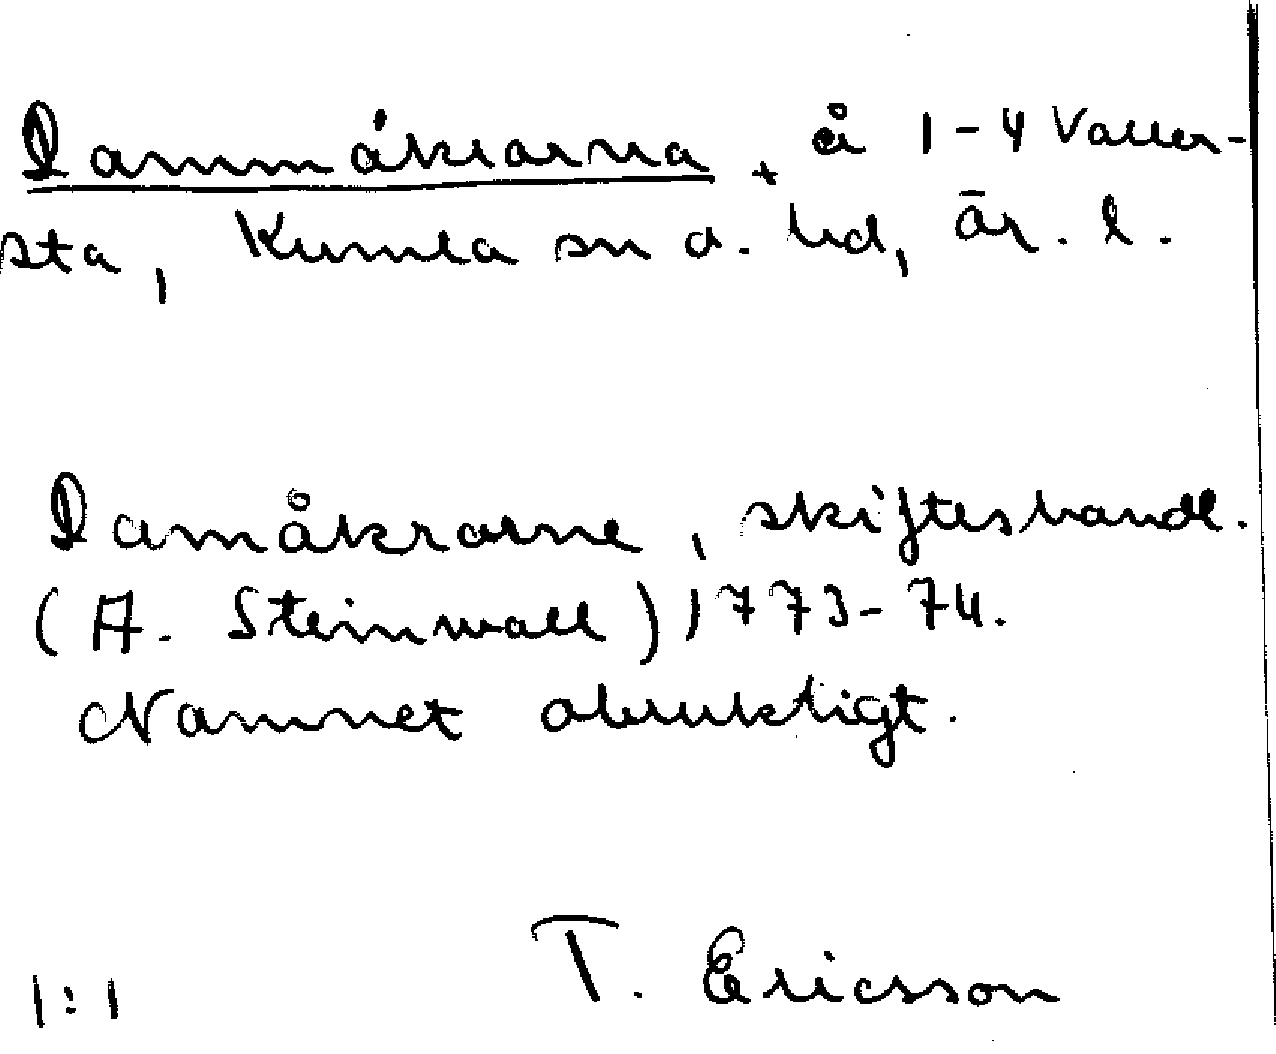 Dammåkrarna, + å 1-4 Valler-
sta, Kumla sn o. hd, Är. l.
Damåkrarne, skifteshandl.
(A. Steinwall) 1773-74.
Namnet obrukligt.
T. Ericsson
1:1